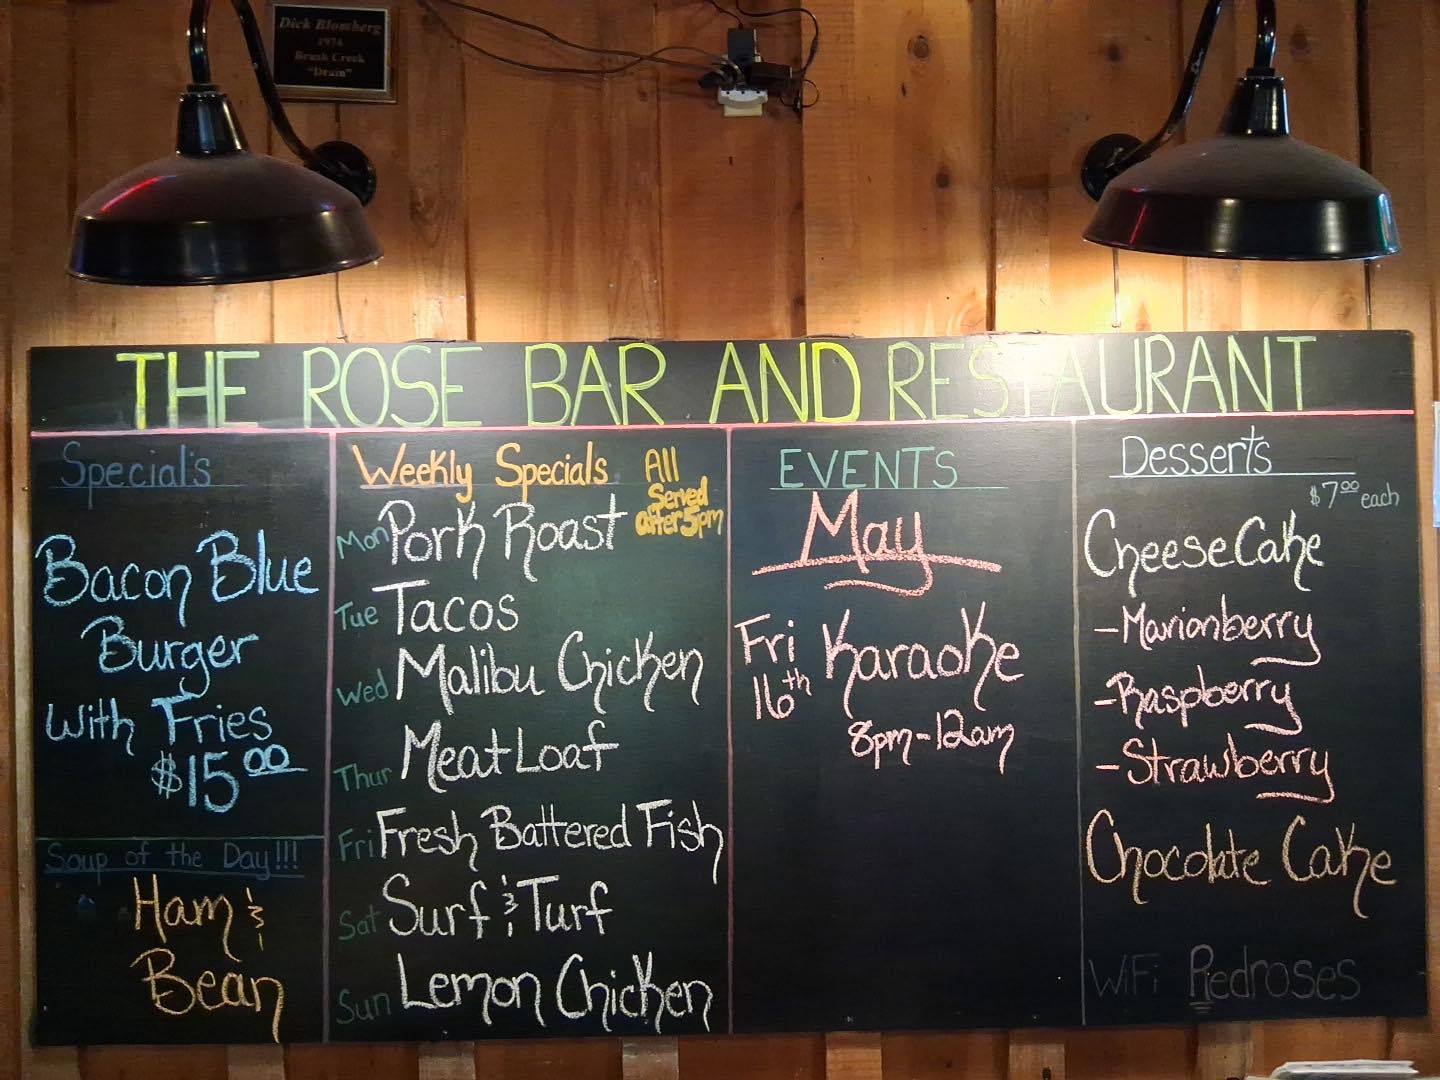 Dick Blomberg
1974
Brush Creek
"Drain"
THE ROSE BAR AND RESTAURANT
Special's
Bacon Blue
Burger
With Fries
$15.00
Soup of the Day!!!
Ham &
Bean
Weekly Specials
All
Served
after 5pm
Mon Pork Roast
Tue Tacos
Wed Malibu Chicken
Thur Meat Loaf
Fri Fresh Battered Fish
Sat Surf & Turf
Sun Lemon Chicken
EVENTS
May
Fri Karaoke
16th
8pm-12am
Desserts
$7.00 each
Cheese Cake
-Marionberry
-Raspberry
-Strawberry
Chocolate Cake
WiFi Redroses